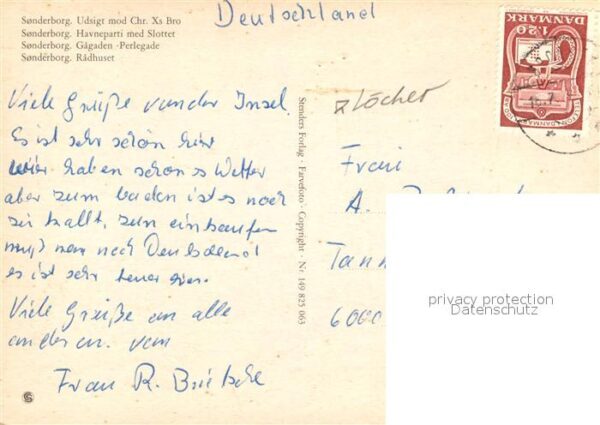 Sønderborg. Udsigt mod Chr. Xs Bro
Sønderborg. Havneparti med Slottet
Sønderborg. Gågaden - Perlegade
Sønderborg. Rådhuset
Deutschland
DANMARK
1.20
Viele Grüße von der Insel.
Es ist sehr schön hier
wier haben schönes Wetter
aber zum baden ist es noch
zu kallt, zum einkaufen
muß man nach Deutschland
es ist sehr teuer hier.
Viele Grüße an alle
anderen. vom
Frau R.
Stenders Forlag · Farvefoto · Copyright · Nr 149 825 063
Löcher
Frau
A.
Tann
6000
privacy protection
Datenschutz